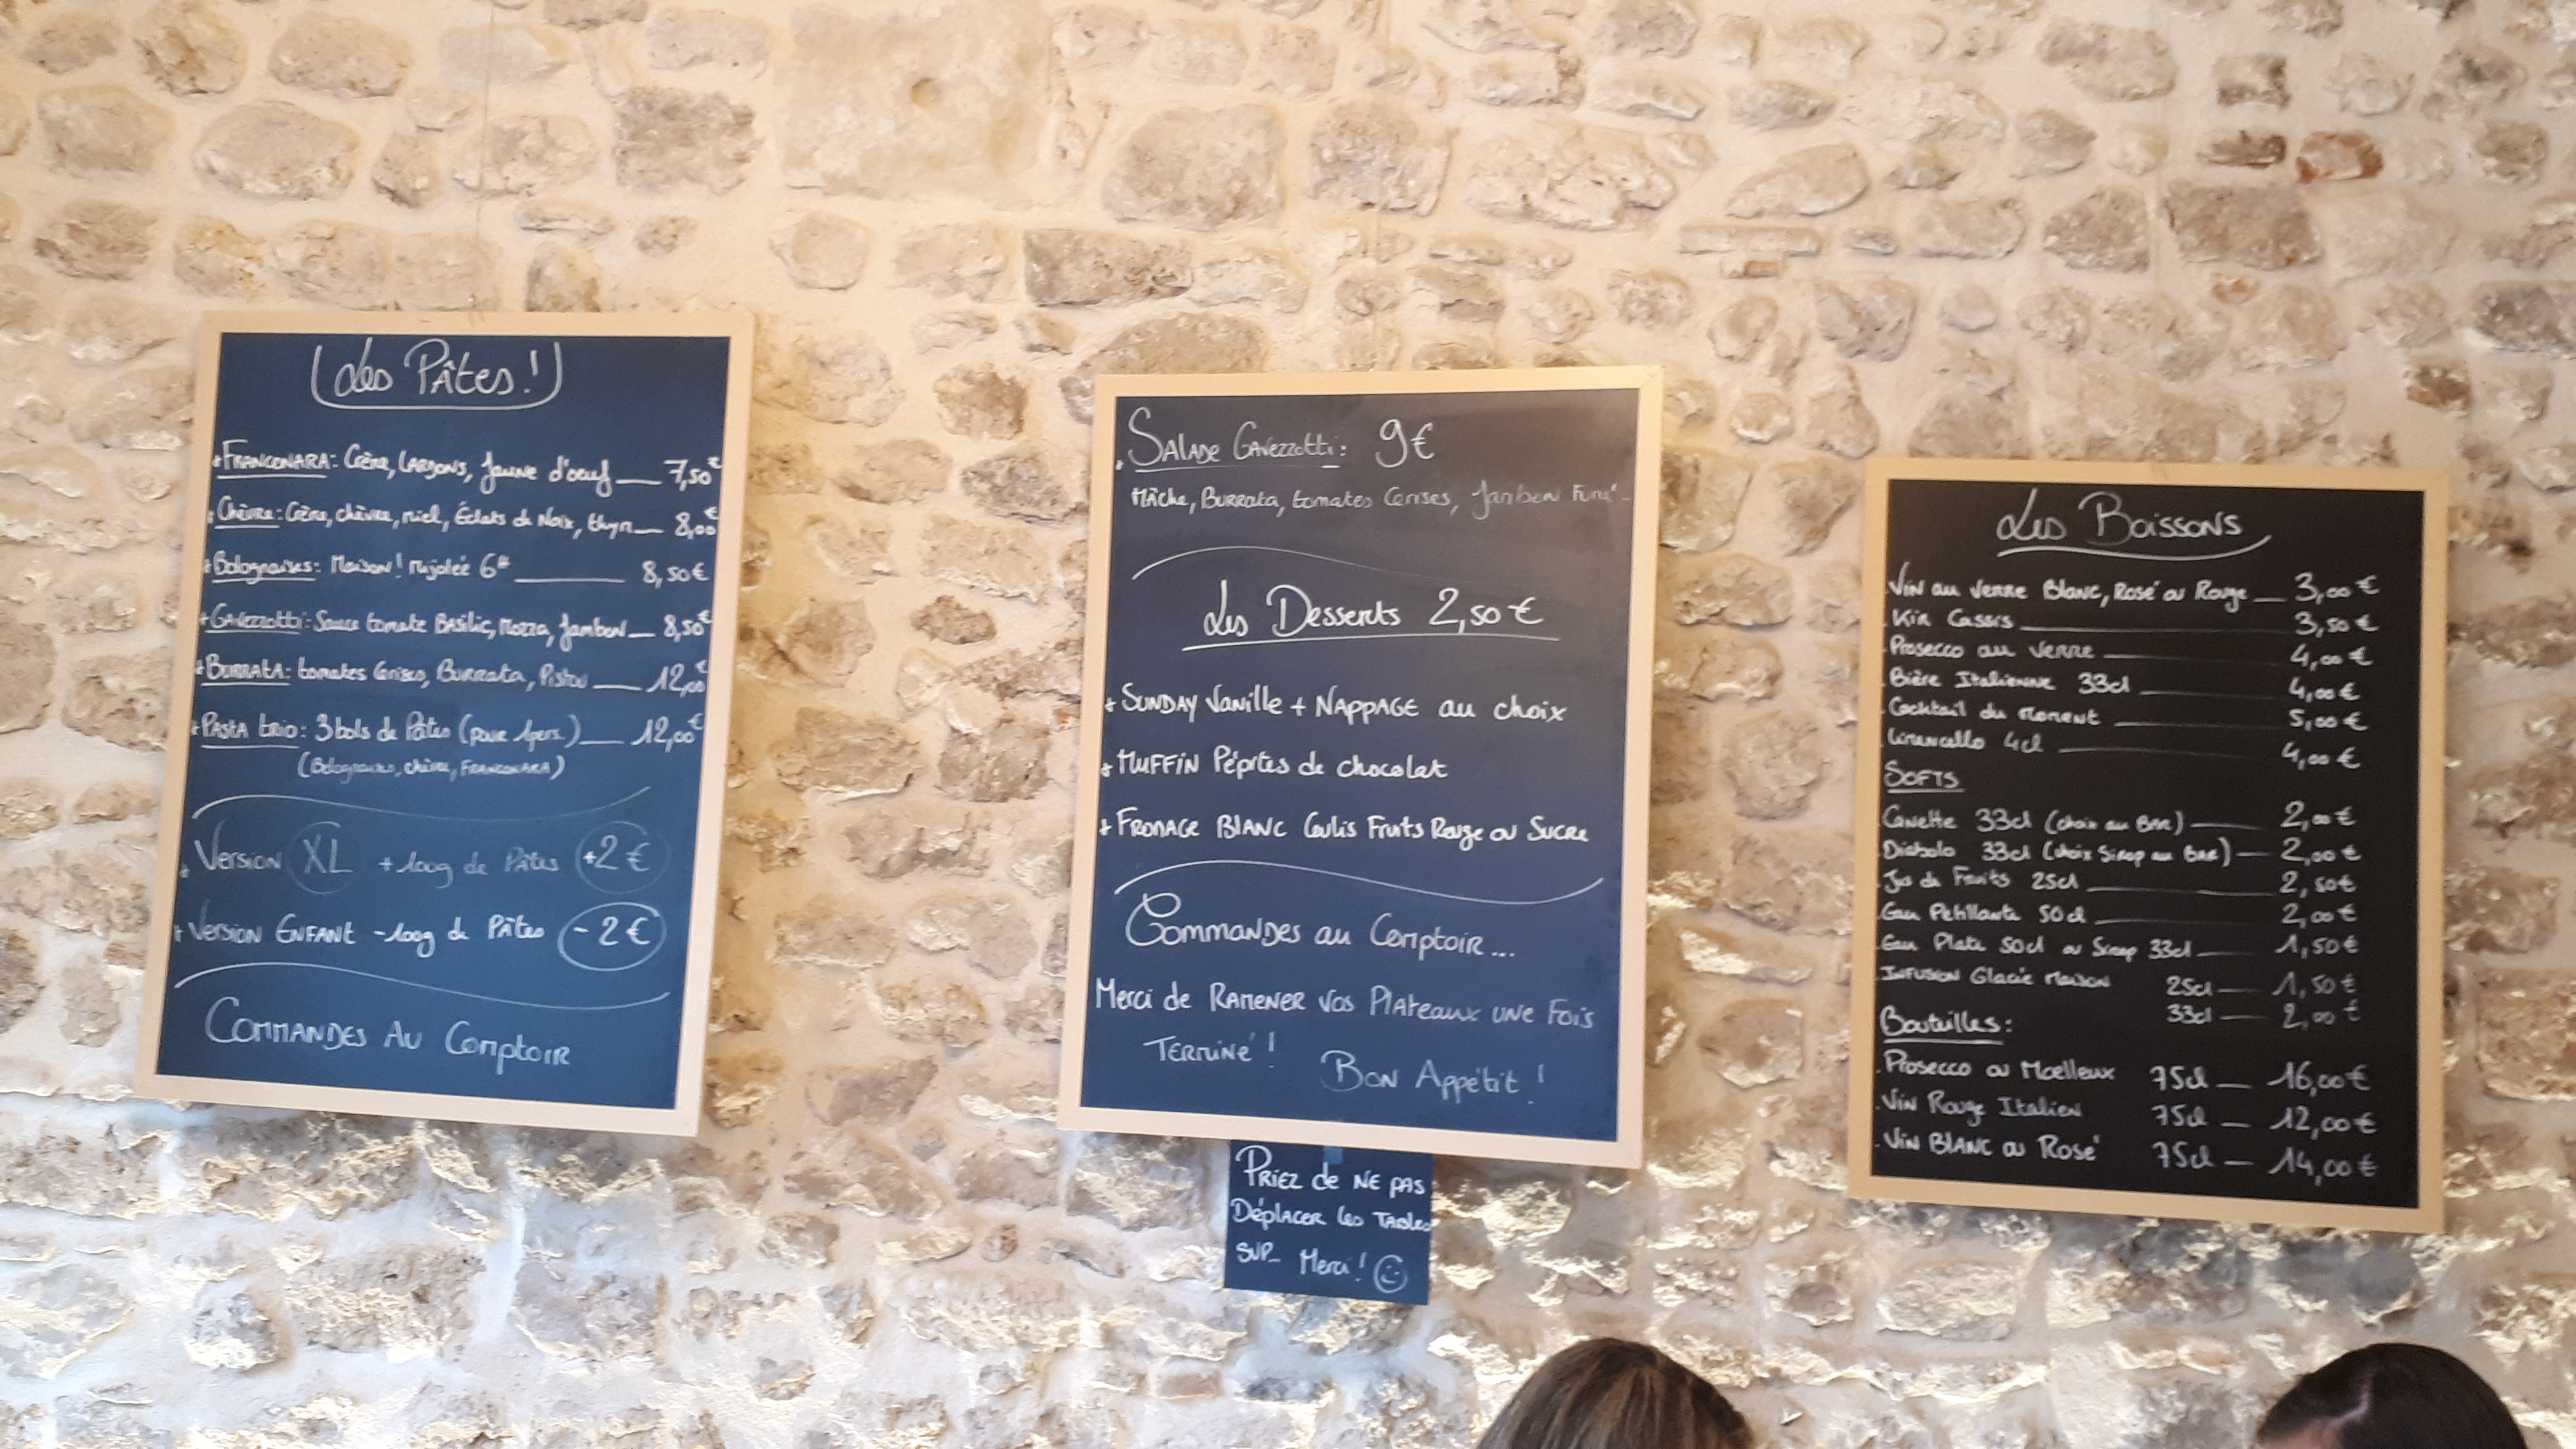 Les Pâtes!
+ FRANCONARA: Crème, LARDONS, Jaune d'oeuf __ 7,50€
+ Chèvre: Crème, chèvre, miel, Éclats de Noix, thym __ 8,00€
+ Bolognaises: Maison! mijotée 6H ____ 8,50€
+ GAVEZZOTTI: Sauce tomate BASILIC, Mozza, Jambon __ 8,50€
+ BURRATA: tomates Cerises, Burrata, Pistou __ 12,00€
+ PASTA trio: 3 bols de Pâtes (pour 1 pers.) __ 12,00€
(Bolognaises, chèvre, FRANCONARA)
+ Version XL + 100g de Pâtes +2€
+ Version ENFANT -100g de Pâtes -2€
COMMANDES AU Comptoir
. SALADE GAVEZZOTTI: 9€
Mâche, Burrata, tomates Cerises, Jambon Fumé
Les Desserts 2,50€
+ SUNDAY Vanille + NAPPAGE au choix
+ MUFFIN Pépites de chocolat
+ FROMAGE BLANC Coulis Fruits Rouge ou SUCRE
Commandes au Comptoir...
Merci de RAMENER vos Plateaux une Fois
TERMINÉ!
BON Appétit!
PRIEZ de NE PAS
Déplacer les TABLES
SVP_ Merci!
Les Boissons
. Vin au Verre Blanc, Rosé ou Rouge __ 3,00€
. Kir Cassis ____ 3,50€
. Prosecco au Verre ____ 4,00€
. Bière Italienne 33cl ____ 4,00€
. Cocktail du Moment ____ 5,00€
. Limoncello 4cl ____ 4,00€
SOFTS
. Canette 33cl (choix au BAR) __ 2,00€
. Diabolo 33cl (choix Sirop au BAR) __ 2,00€
. Jus de Fruits 25cl ____ 2,50€
. Eau Pétillante 50cl ____ 2,00€
. Eau Plate 50cl ou Sirop 33cl __ 1,50€
. INFUSION Glacée Maison 25cl __ 1,50€
33cl __ 2,00€
Bouteilles:
. Prosecco ou Moelleux 75cl __ 16,00€
. Vin Rouge Italien 75cl __ 12,00€
. Vin BLANC ou Rosé 75cl __ 14,00€